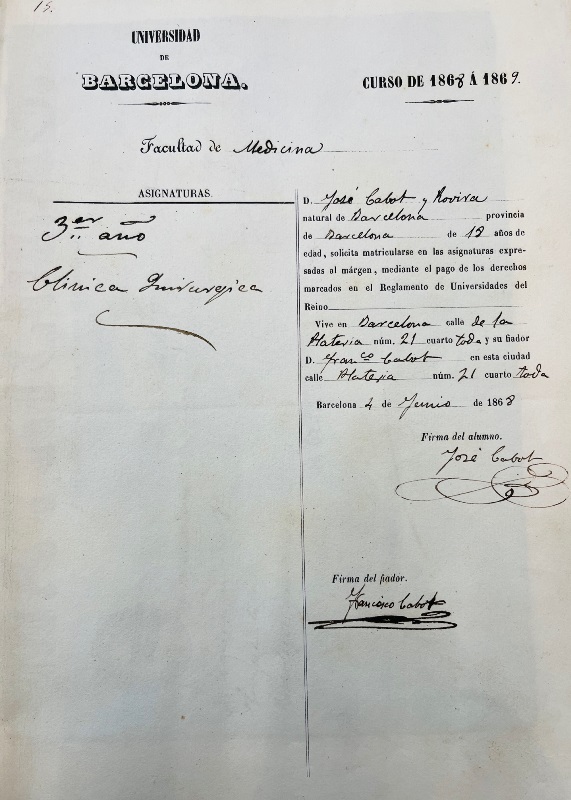 15.
UNIVERSIDAD
DE
BARCELONA.
CURSO DE 1868 Á 1869.
Facultad de Medicina
ASIGNATURAS.
3er año
Clinica Quirurgica
D. José Cabot y Rovira
natural de Barcelona provincia
de Barcelona de 18 años de
edad, solicita matricularse en las asignaturas expre-
sadas al márgen, mediante el pago de los derechos
marcados en el Reglamento de Universidades del
Reino
Vive en Barcelona calle de la
Plateria núm. 21 cuarto toda y su fiador
D. Franco Cabot en esta ciudad
calle Plateria núm. 21 cuarto toda
Barcelona 4 de Junio de 1868
Firma del alumno.
José Cabot
Firma del fiador.
Francisco Cabot